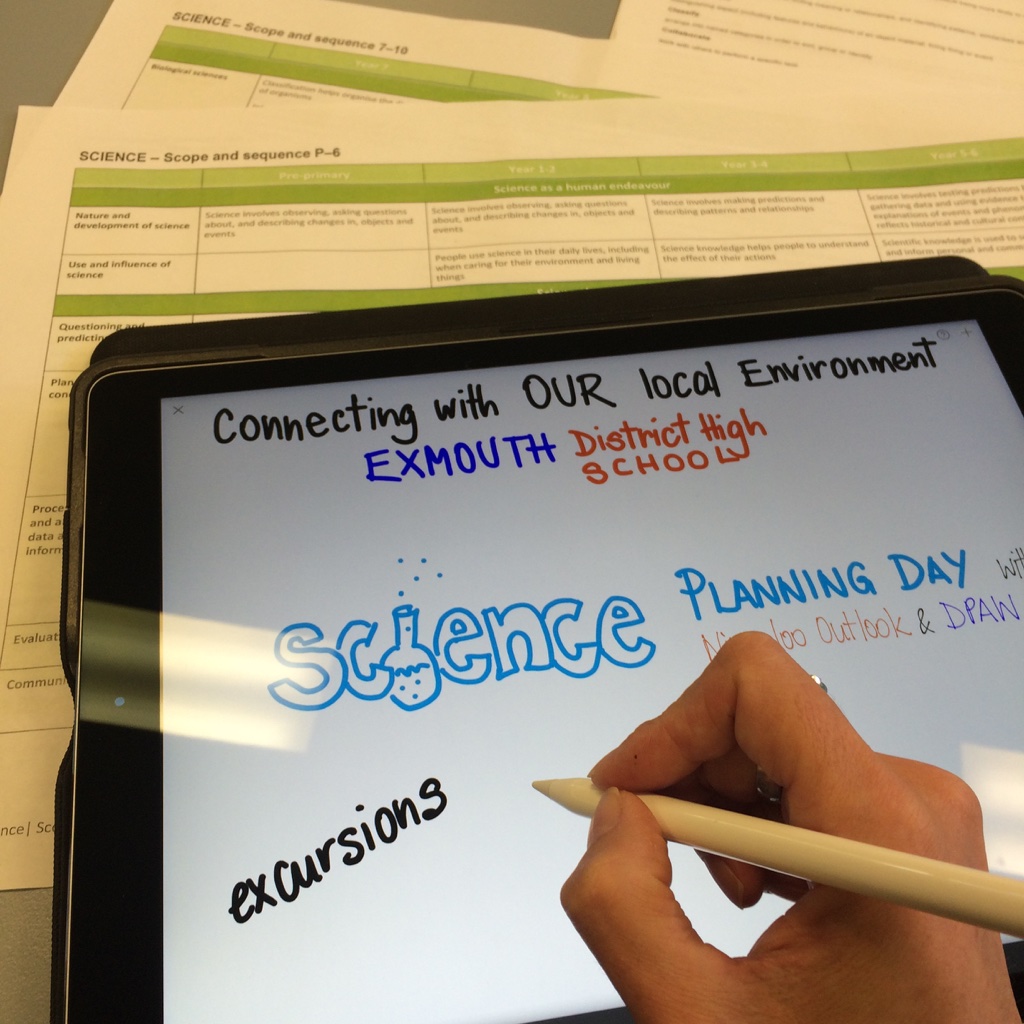 SCIENCE – Scope and sequence 7–10
Year 7
Biological sciences
Classification helps organise the
of organisms
Classify
Collaborate
SCIENCE – Scope and sequence P–6
Pre-primary Year 1-2 Year 3-4 Year 5-6
Science as a human endeavour
Nature and
development of science
Science involves observing, asking questions
about, and describing changes in, objects and
events
Science involves observing, asking questions
about, and describing changes in, objects and
events
Science involves making predictions and
describing patterns and relationships
Science involves testing predictions
gathering data and using evidence
explanations of events and
reflects historical and cultural
Use and influence of
science
People use science in their daily lives, including
when caring for their environment and living
things
Science knowledge helps people to understand
the effect of their actions
Scientific knowledge is used to
and inform personal and
Questioning and
predictin
Plan
Proce
and a
data a
inform
Evaluat
Communi
nce| Sco
Connecting with OUR local Environment
EXMOUTH District High
SCHOOL
science PLANNING DAY with
Outlook & DPAW
excursions